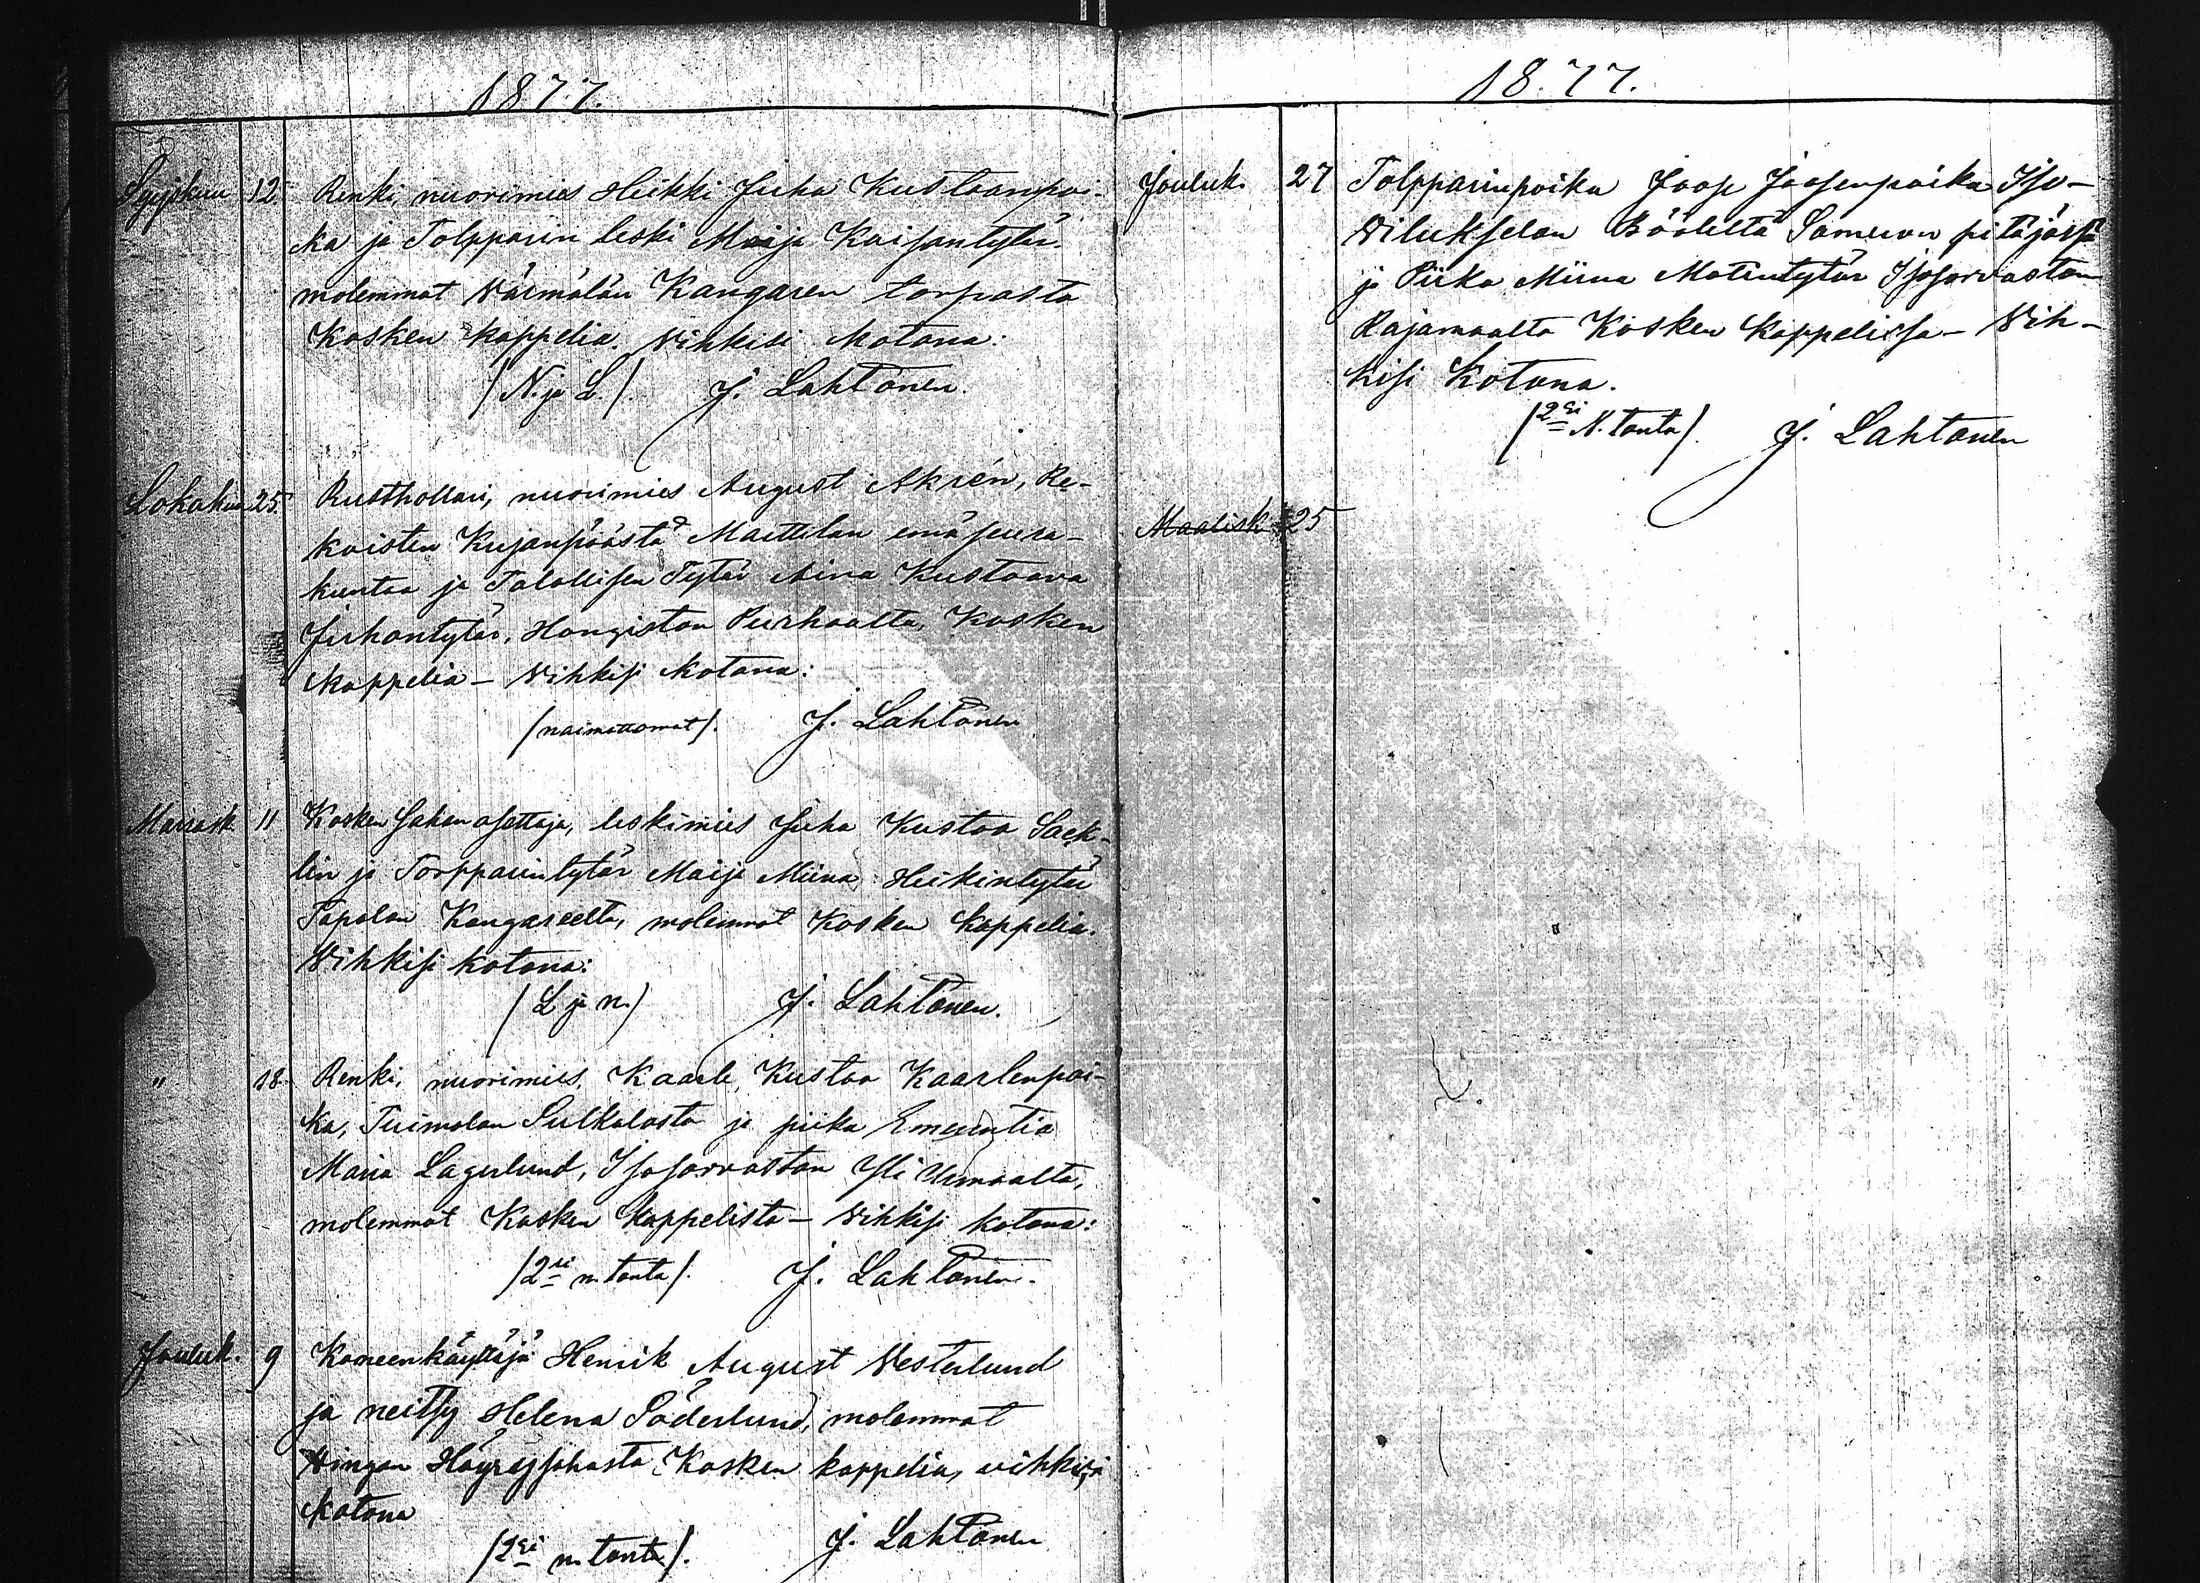 1877.
Syyskuu 12. Renki, nuorimies Heikki Juha Kustaanpoi-
ka ja Tolpparin leski Maija Kaisantytär.
molemmat Wärmälän Kangaren torpasta
Kosken kappelia. Wihkisi kotona:
/N. ja L./. J. Lahtonen.
Lokakuu 25. Rusthollari, nuorimies August Akrén, Re-
koisten Kujanpäästä Marttilan emäseura-
kuntaa ja Talollisen Tytär Aina Kustaava
Juhantytär, Hongiston Purhaalta, Kosken
kappelia – Wihkisi kotona:
/naimattomat/. J. Lahtonen
Marrask. 11 Kosken Sahan asettaja, leskimies Juha Kustaa Sack-
lin ja Torpparintytär Maija Miina Heikintytär
Tapalan Kangareelta, molemmat Kosken kappelia.
Wihkisi kotona:
/L ja n./ J. Lahtonen.
" 18. Renki, nuorimies, Kaarle Kustaa Kaarlenpoi-
ka, Tuimalan Sulkalasta ja piika Emerentia
Maria Lagerlund, Isosorvaston Yli Urmaalta,
molemmat Kosken kappelista – Wihkisi kotona:
/2si n. tonta/. J. Lahtonen.
Jouluk. 9 Koneenkäyttäjä Henrik August Westerlund
ja neitsy Helena Söderlund, molemmat
Wingan Höyrysahasta, Kosken kappelia, vihkisi
kotona
/2si n. tonta/. J. Lahtonen
18.77.
Jouluk. 27 Tolpparinpoika Joose Joosenpoika Iso-
Wilukselan Bööleltä Sameron pitäjässä
ja Piika Miina Matintytär Isosorvaston
Rajamaalta Kosken Kappelissa – Wih-
kisi Kotona.
/2si N. tonta/. J. Lahtonen
Maalisk 25